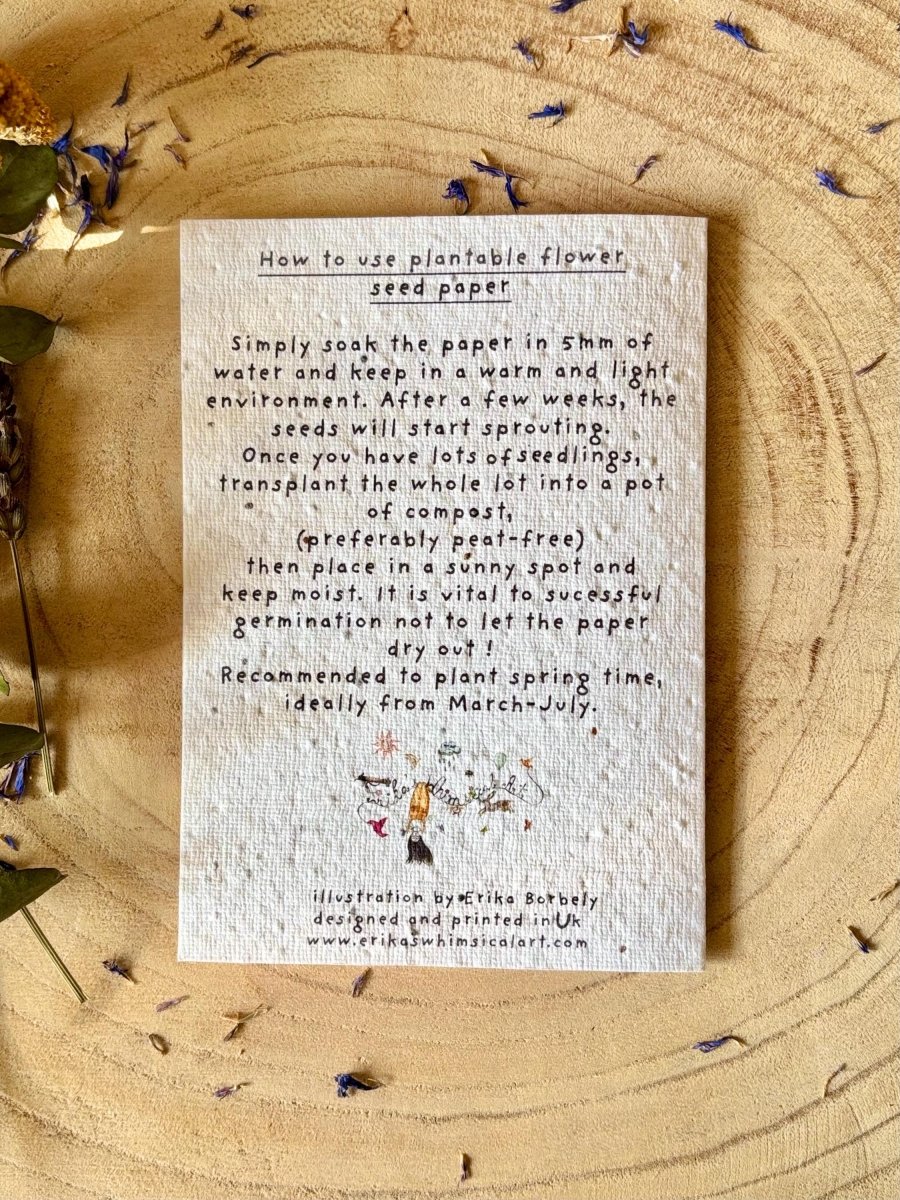 How to use plantable flower
seed paper
Simply soak the paper in 5mm of
water and keep in a warm and light
environment. After a few weeks, the
seeds will start sprouting.
Once you have lots of seedlings,
transplant the whole lot into a pot
of compost,
(preferably peat-free)
then place in a sunny spot and
keep moist. It is vital to sucessful
germination not to let the paper
dry out !
Recommended to plant spring time,
ideally from March-July.
illustration by Erika Borbely
designed and printed in Uk
www.erikaswhimsicalart.com